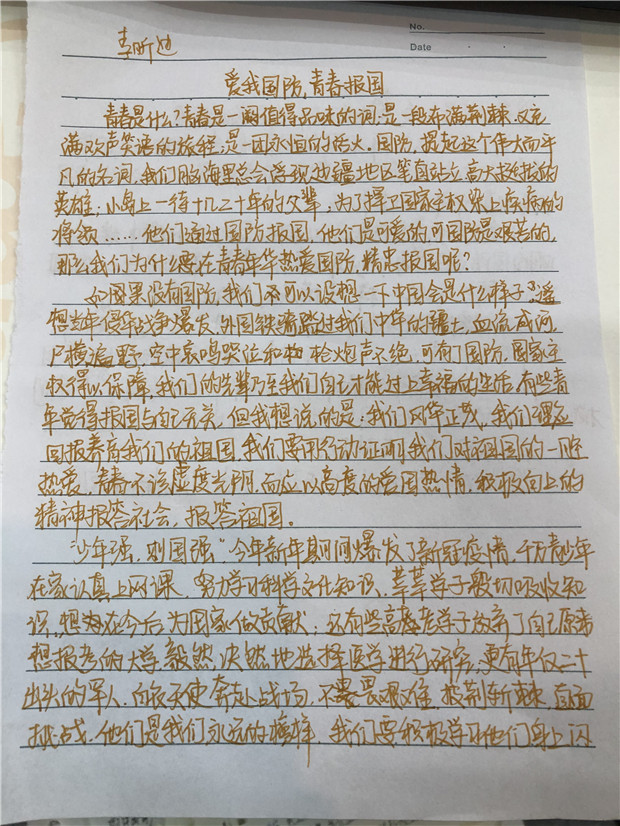 No.
Date
李昕
爱我国防,青春报国
青春是什么?青春是一阕值得品味的词,是一段布满荆棘、又充
满欢声笑语的旅程,是一团永恒的活火。国防,提起这个伟大而平
凡的名词,我们脑海里总会浮现边疆地区笔直站立,高大挺拔的
英雄;小岛上一待十几二十年的父辈;为了捍卫国家主权染上疾病的
将领……他们通过国防报国,他们是可爱的,可国防是艰苦的,
那么我们为什么要在青春年华热爱国防,精忠报国呢?
如果没有国防,我们可以设想一下中国会是什么样子?遥
想当年侵华战争爆发,外国铁骑踏过我们中华的疆土,血流成河,
尸横遍野,空中哀鸣哭泣和枪炮声不绝,可有了国防,国家主
权得以保障,我们的先辈乃至我们自己才能过上幸福的生活。有些青
年觉得报国与自己无关,但我想说的是:我们风华正茂,我们理应
回报养育我们的祖国,我们要用行动证明我们对祖国的一腔
热爱,青春不该虚度光阴,而应以高度的爱国热情,积极向上的
精神报答社会,报答祖国。
“少年强,则国强”今年新年期间爆发了新冠疫情,千万青少年
在家认真上网课,努力学习科学文化知识,莘莘学子殷切吸收知
识,想在今后为国家做贡献;还有些高考学子放弃了自己原来
想报考的大学毅然决然地选择医学进行研究,更有年仅二十
出头的军人、白衣天使奔赴战场,不畏艰难,披荆斩棘,直面
挑战,他们是我们永远的榜样,我们要积极学习他们身上闪